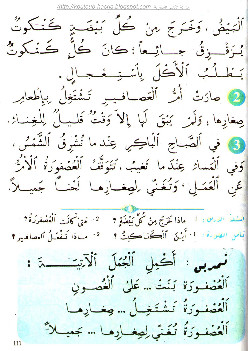 البَيْضُ، وَخَرَجَ مِنْ كُلِّ بَيْضَةٍ كَتْكُوتٌ
يُزَقْزِقُ جَائِعاً: كَانَ كُلُّ كَتْكُوتٍ
يَطْلُبُ الْأَكْلَ بِاسْتِعْجَالٍ.
2 صَارَتْ أُمُّ الْعَصَافِيرِ تَشْتَغِلُ بِإِطْعَامِ
صِغَارِهَا، وَلَمْ يَبْقَ لَهَا إِلَّا وَقْتٌ قَلِيلٌ لِلْغِنَاءِ.
3 فِي الصَّبَاحِ الْبَاكِرِ عِنْدَمَا تُشْرِقُ الشَّمْسُ،
وَفِي الْمَسَاءِ عِنْدَمَا تَغِيبُ، تَتَوَقَّفُ الْعُصْفُورَةُ الْأُمُّ
عَنِ الْعَمَلِ، وَتُغَنِّي لِصِغَارِهَا لَحْناً جَمِيلاً.
1 - مَاذَا خَرَجَ مِنْ كُلِّ بَيْضَةٍ؟ 2 - مَتَى كَانَتِ الْعُصْفُورَةُ؟
1 - أَيْنَ الْكَتَاكِيتُ؟ 2 - مَاذَا تَفْعَلُ الْعَصَافِيرُ؟
تمرين: أُكْمِلُ الْجُمَلَ الْآتِيَةَ:
الْعُصْفُورَةُ بَنَتْ ... عَلَى الْغُصُونِ
الْعُصْفُورَةُ تَشْتَغِلُ ... صِغَارِهَا
الْعُصْفُورَةُ تُغَنِّي لِصِغَارِهَا ... جَمِيلاً